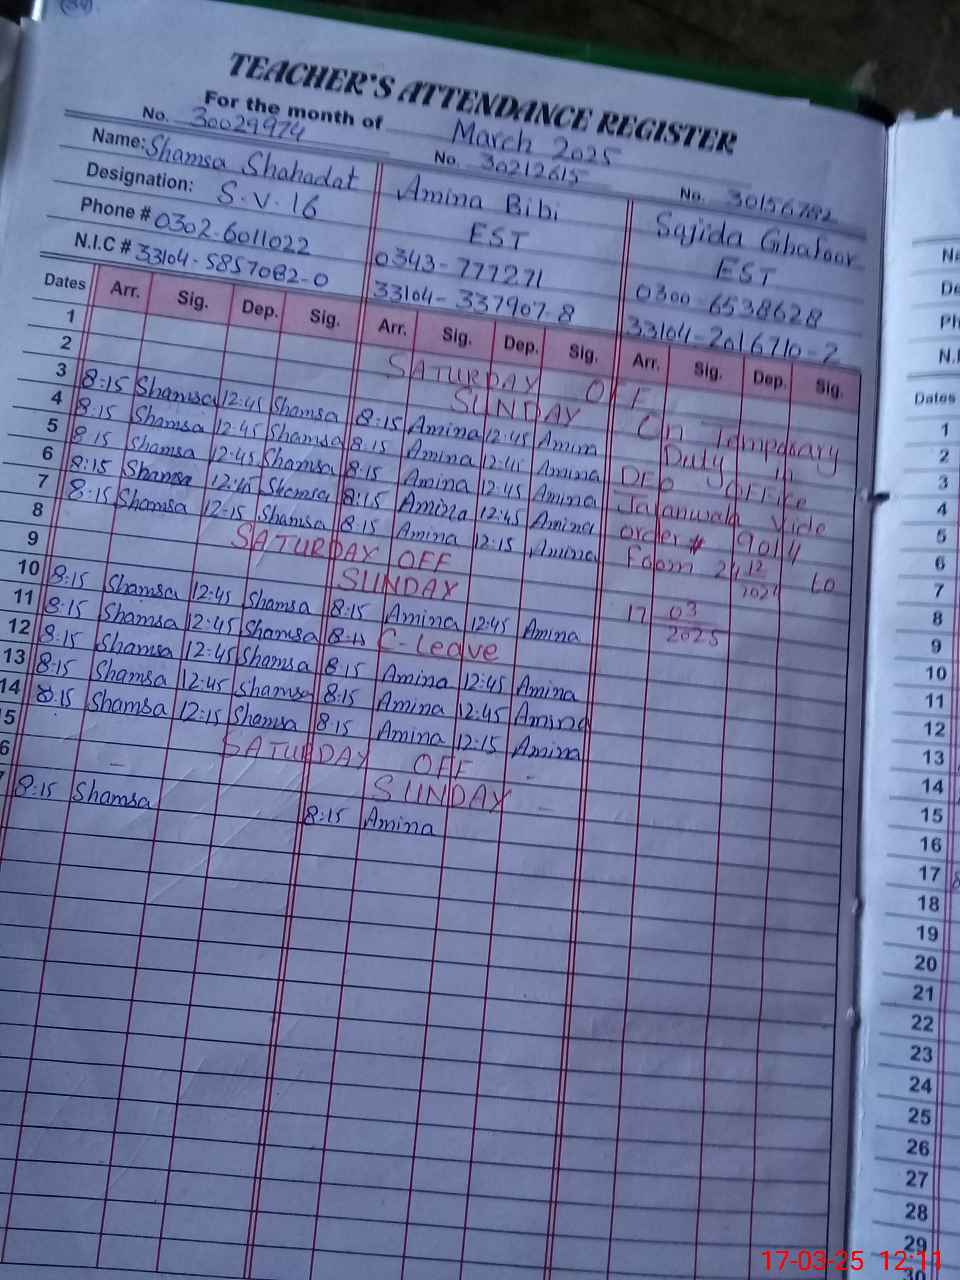 TEACHER'S ATTENDANCE REGISTER
For the month of March 2025
No. 30029974 No. 30212615 No. 30156782
Name: Shamsa Shahadat Amina Bibi Sajida Ghafoor
Designation: S.V.16 EST EST
Phone # 0302-6011022 0343-777271 0300-6538628
N.I.C # 33104-5857082-0 33104-337907-8 33104-2016710-2
Dates Arr. Sig. Dep. Sig. Arr. Sig. Dep. Sig. Arr. Sig. Dep. Sig.
1 SATURDAY OFF
2 SUNDAY
3 8:15 Shamsa 12:45 Shamsa 8:15 Amina 12:45 Amina
4 8:15 Shamsa 12:45 Shamsa 8:15 Amina 12:45 Amina
5 8:15 Shamsa 12:45 Shamsa 8:15 Amina 12:45 Amina
6 8:15 Shamsa 12:45 Shamsa 8:15 Amina 12:45 Amina
7 8:15 Shamsa 12:15 Shamsa 8:15 Amina 12:15 Amina
8 SATURDAY OFF
9 SUNDAY
10 8:15 Shamsa 12:45 Shamsa 8:15 Amina 12:45 Amina
11 8:15 Shamsa 12:45 Shamsa C-leave
12 8:15 Shamsa 12:45 Shamsa 8:15 Amina 12:45 Amina
13 8:15 Shamsa 12:45 Shamsa 8:15 Amina 12:45 Amina
14 8:15 Shamsa 12:15 Shamsa 8:15 Amina 12:15 Amina
5 SATURDAY OFF
6 SUNDAY
8:15 Shamsa 8:15 Amina
On Temporary
Duty in
DEO Office
Jaranwala Vide
order # 9014
From 24 12 2024 to
17 03 2025
Dates
1
2
3
4
5
6
7
8
9
10
11
12
13
14
15
16
17
18
19
20
21
22
23
24
25
26
27
28
29
30
17-03-25 12:11